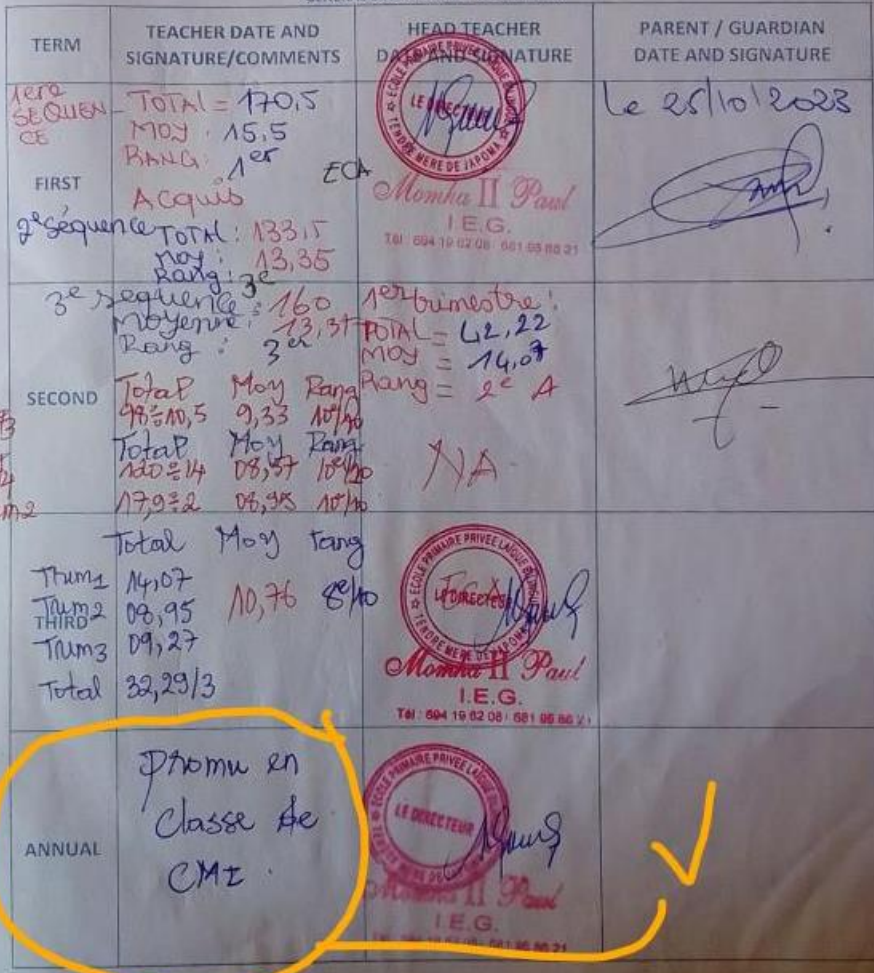 TERM
TEACHER DATE AND
SIGNATURE/COMMENTS
HEAD TEACHER
DATE AND SIGNATURE
PARENT / GUARDIAN
DATE AND SIGNATURE
1ere
SEQUEN
CE
TOTAL = 170,5
MOY : 15,5
RANG : 1er
Acquis
FIRST
ECA
2e séquence TOTAL : 133,5
moy : 13,35
Rang : 3e
ECOLE PRIMAIRE PRIVEE LAIQUE BILINGUE
LE DIRECTEUR
TENDRE MERE DE JAPOMA
Momha II Paul
I.E.G.
Tél : 694 19 62 08
Le 25/10/2023
SECOND
3e sequence : 160
Moyenne : 13,37
Rang : 3er
Total Moy Rang
98÷10,5 9,33 10e/10
Total Moy Rang
120÷14 08,57 10e/10
17,9÷2 08,95 10e/10
1er trimestre :
TOTAL = 42,22
moy = 14,07
Rang = 2e A
NA
THIRD
Total Moy rang
Trim1 14,07
Trim2 08,95
10,76 8e/10
Trim3 09,27
Total 32,29/3
ECOLE PRIMAIRE PRIVEE LAIQUE BILINGUE
LE DIRECTEUR
TENDRE MERE DE JAPOMA
Momha II Paul
I.E.G.
Tél : 694 19 62 08
ANNUAL
Promu en
Classe de
CMI.
ECOLE PRIMAIRE PRIVEE
LE DIRECTEUR
Momha II Paul
I.E.G.